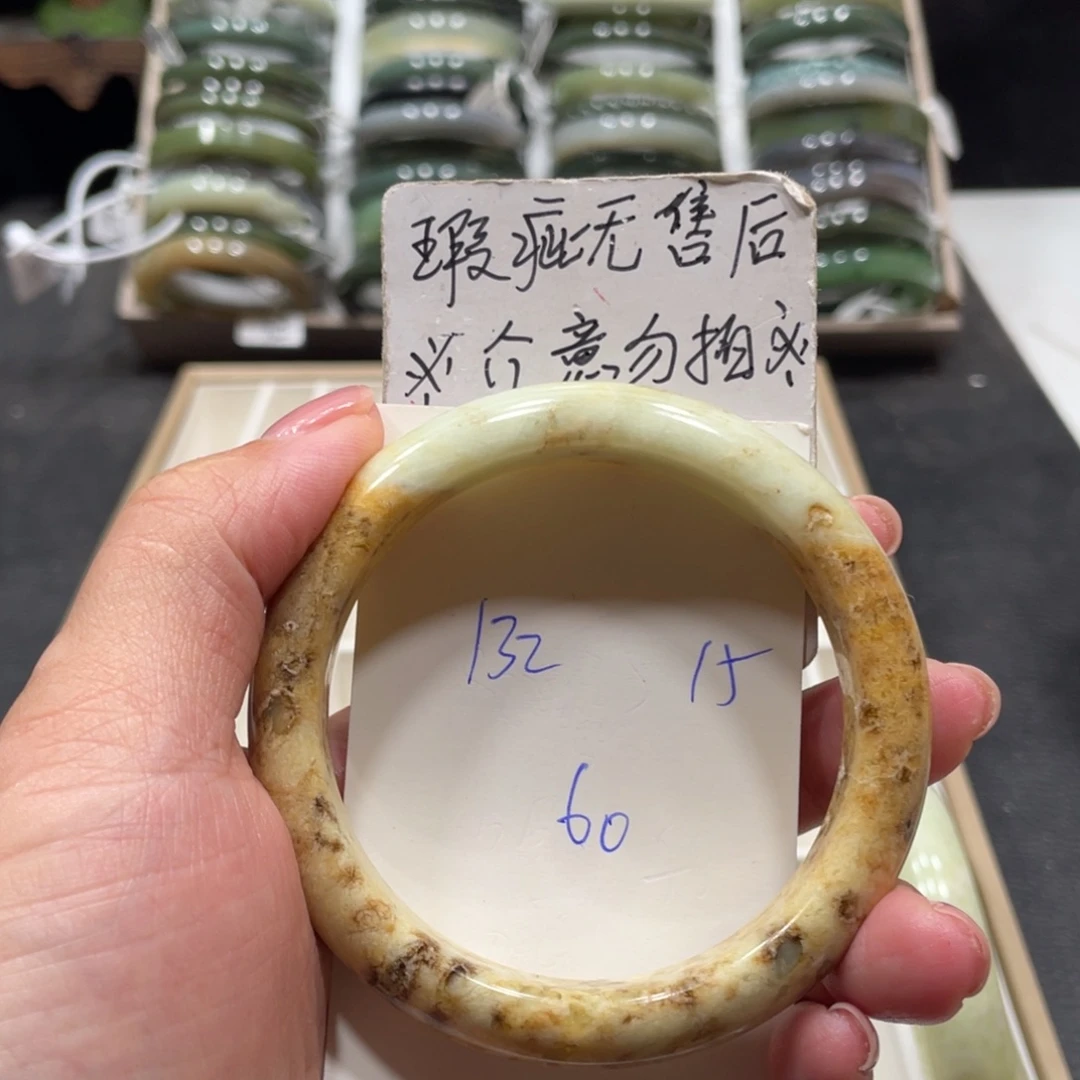 瑕疵无售后
※介意勿拍※
132 15
60